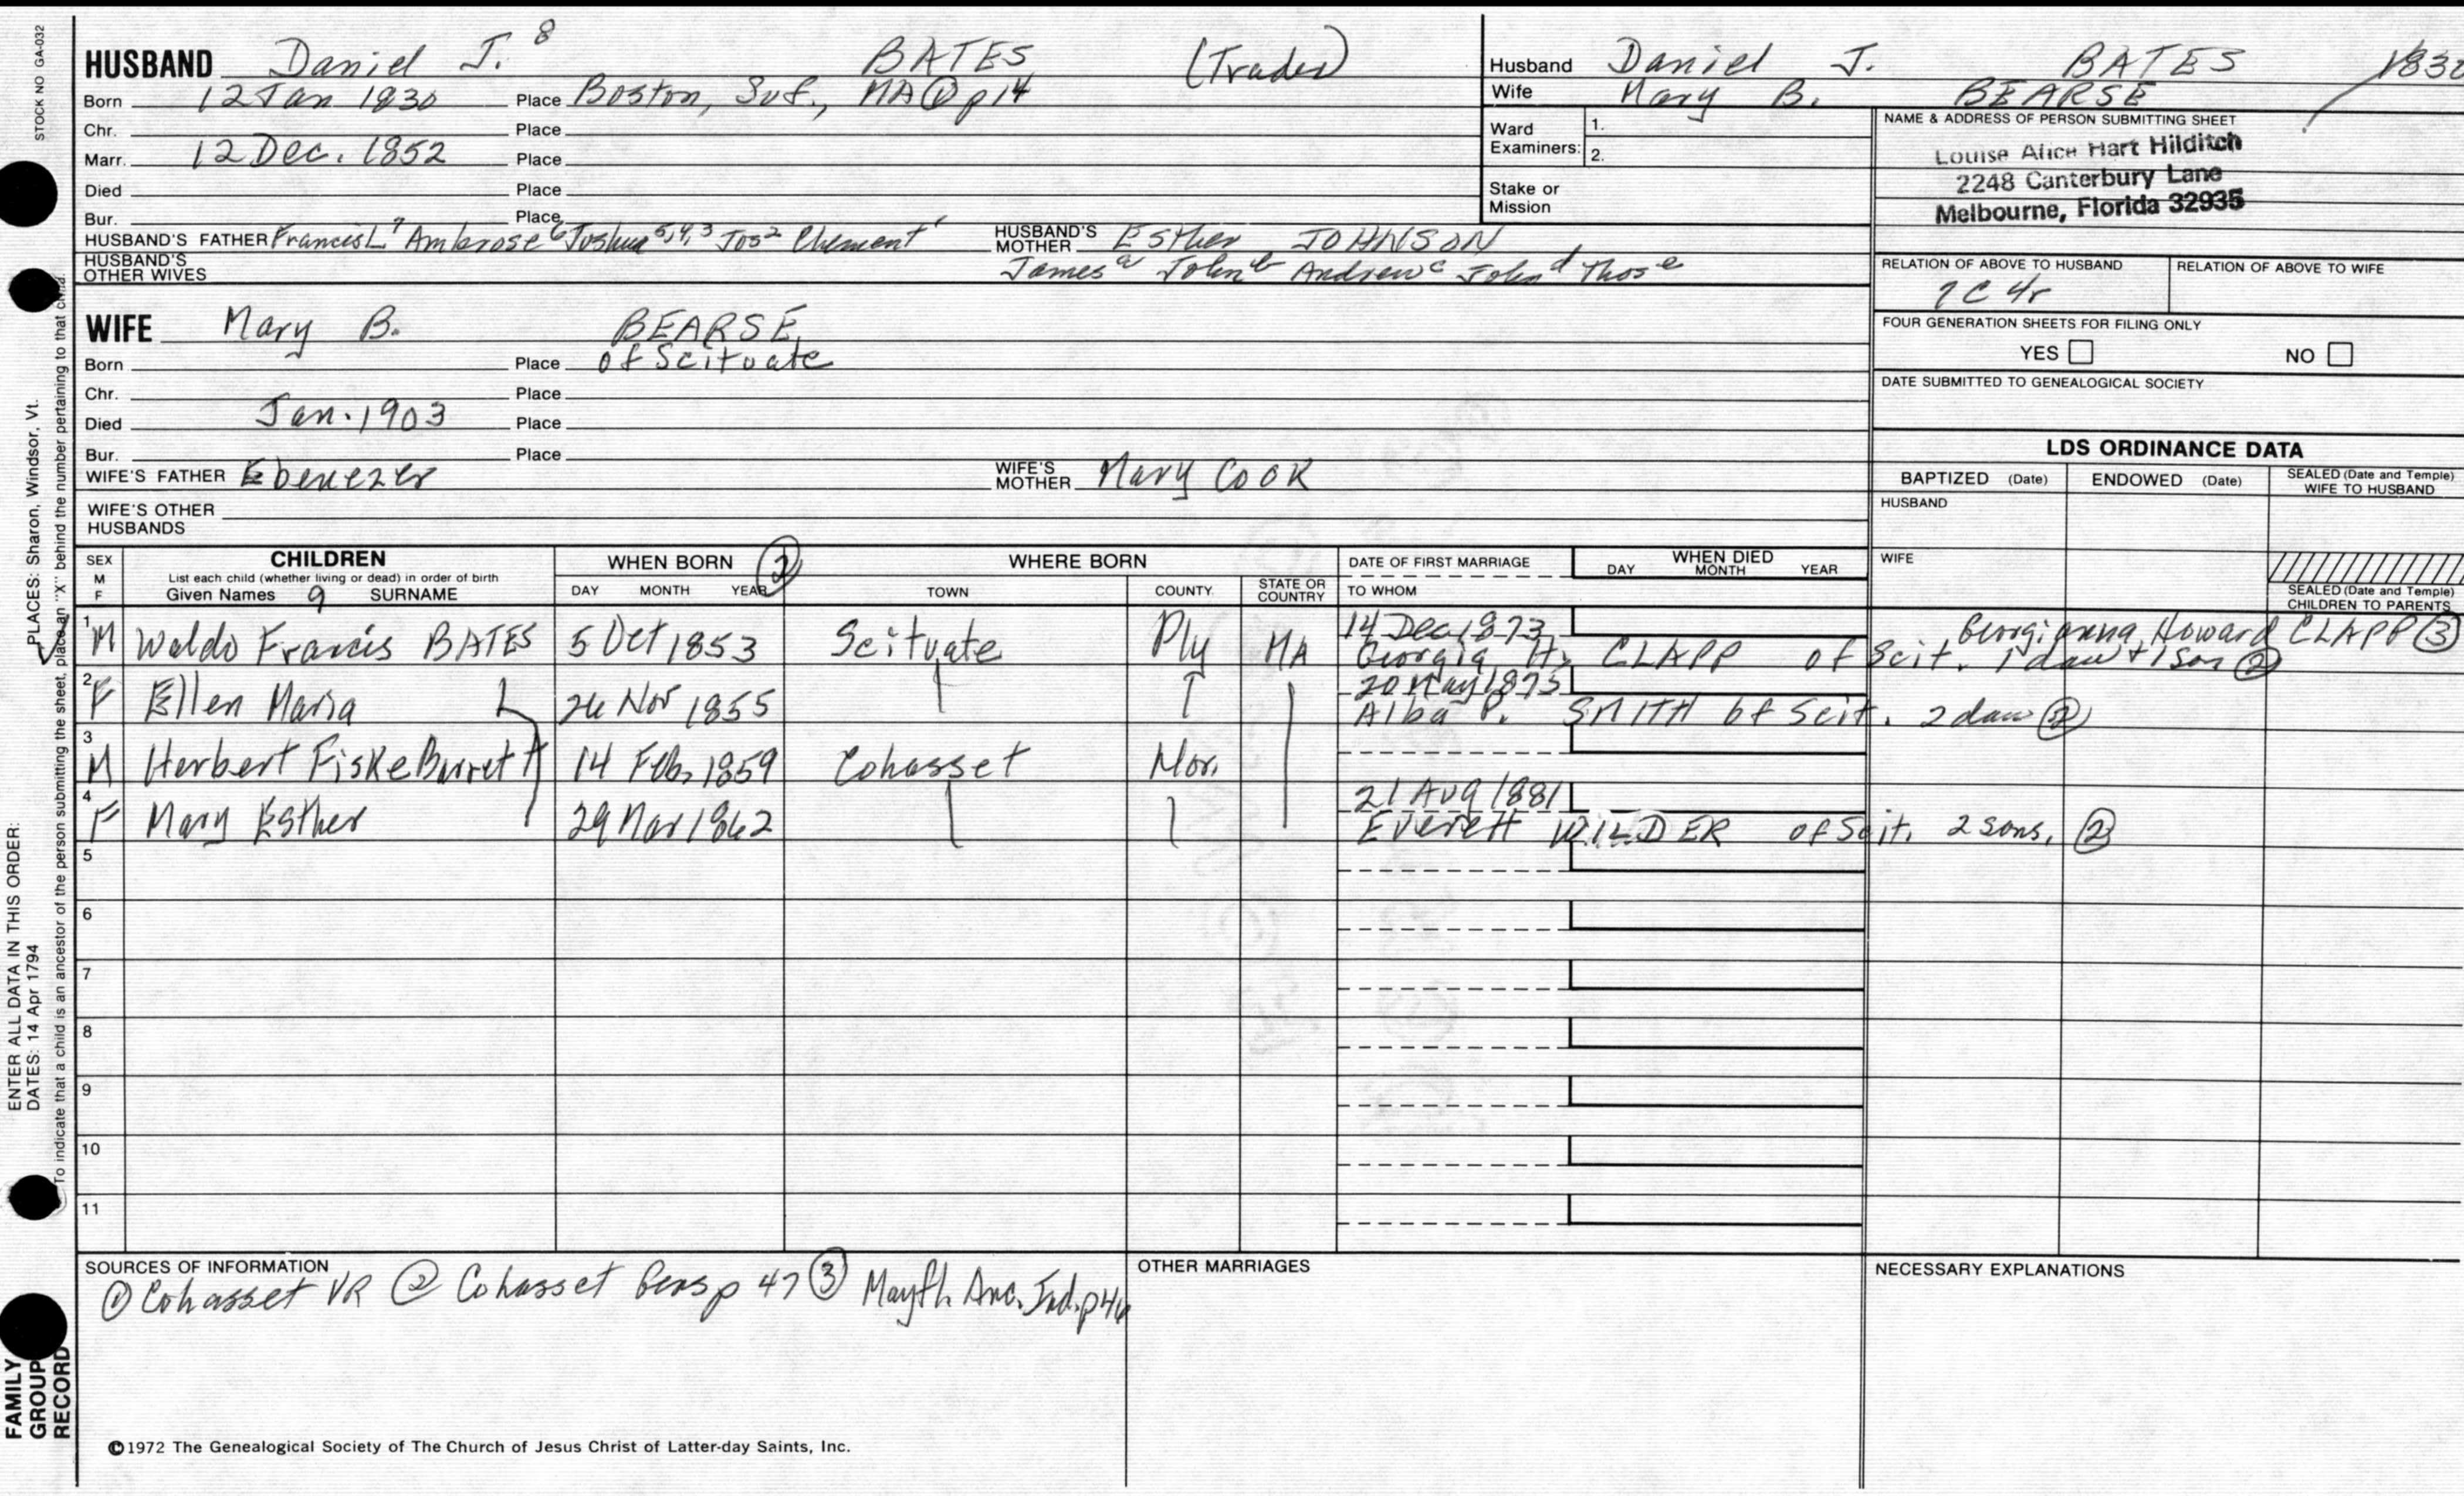 STOCK NO GA-032
HUSBAND Daniel J. 8 BATES (Trader)
Born 12 Jan 1830 Place Boston, Suf., MA ① p 14
Chr. Place
Marr. 12 Dec. 1852 Place
Died Place
Bur. Place
HUSBAND'S FATHER Francis L 7 Ambrose 6 Joshua 5,4,3 Jos 2 Clement 1 HUSBAND'S MOTHER Esther JOHNSON
HUSBAND'S OTHER WIVES James a John b Andrew c John d Thos e
WIFE Mary B. BEARSE
Born Place of Scituate
Chr. Place
Died Jan. 1903 Place
Bur. Place
WIFE'S FATHER Ebenezer WIFE'S MOTHER Mary COOK
WIFE'S OTHER HUSBANDS
Husband Daniel J. BATES 1830
Wife Mary B. BEARSE
Ward Examiners: 1. 2.
Stake or Mission
NAME & ADDRESS OF PERSON SUBMITTING SHEET
Louise Alice Hart Hilditch
2248 Canterbury Lane
Melbourne, Florida 32935
RELATION OF ABOVE TO HUSBAND RELATION OF ABOVE TO WIFE
7C 4r
FOUR GENERATION SHEETS FOR FILING ONLY
YES NO
DATE SUBMITTED TO GENEALOGICAL SOCIETY
LDS ORDINANCE DATA
BAPTIZED (Date) ENDOWED (Date) SEALED (Date and Temple) WIFE TO HUSBAND
HUSBAND
WIFE
SEALED (Date and Temple) CHILDREN TO PARENTS
SEX M F CHILDREN WHEN BORN ② WHERE BORN DATE OF FIRST MARRIAGE WHEN DIED
List each child (whether living or dead) in order of birth
Given Names 9 SURNAME DAY MONTH YEAR TOWN COUNTY STATE OR COUNTRY TO WHOM DAY MONTH YEAR
1 M Waldo Francis BATES 5 Oct 1853 Scituate Ply MA 14 Dec 1873 Georgianna Howard CLAPP ③
Georgia H. CLAPP of Scit. 1 dau + 1 son ②
2 F Ellen Maria 26 Nov 1855 20 May 1875
Alba P. SMITH of Scit. 2 dau ②
3 M Herbert Fiske Barrett 14 Feb 1859 Cohasset Nor.
4 F Mary Esther 29 Mar 1862 21 Aug 1881
Everett WILDER of Scit. 2 sons. ②
5
6
7
8
9
10
11
SOURCES OF INFORMATION
① Cohasset VR ② Cohasset Gens p 47 ③ Mayfl. Anc. Ind. p 46
OTHER MARRIAGES
NECESSARY EXPLANATIONS
©1972 The Genealogical Society of The Church of Jesus Christ of Latter-day Saints, Inc.
ENTER ALL DATA IN THIS ORDER:
DATES: 14 Apr 1794 PLACES: Sharon, Windsor, Vt.
To indicate that a child is an ancestor of the person submitting the sheet, place an "X" behind the number pertaining to that child.
FAMILY
GROUP
RECORD